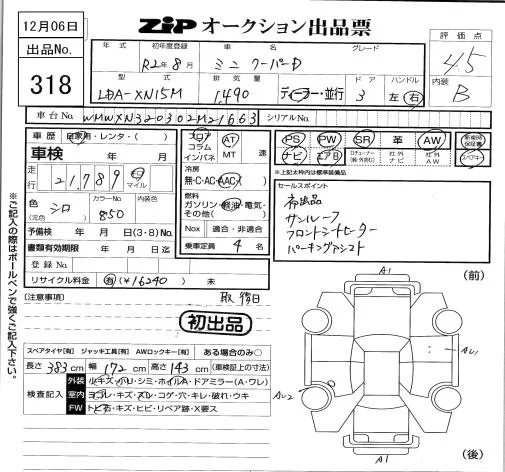 12月06日
ZIP オークション出品票
出品No.
318
評価点
4.5
内装
B
年式 初年度登録 車名 グレード
R2年8月 ミニ クーパーD
型式 排気量 ドア ハンドル
LDA-XN15M 1,490 ディーラー・並行 3 左 右
車台No. WMWXN320302M21663 シリアルNo.
車歴 自家用・レンタ・( )
車検 年 月
走行 21,789 キロ マイル
色 (元色) シロ カラーNo. 850 内装色
予備検 年 月 日(3・8)No.
書類有効期限 年 月 日迄
登録No.
リサイクル料金 有(¥16240) 未
フロア コラム インパネ
AT MT 速
冷房
無・C・AC・AAC
燃料
ガソリン・軽油・電気・その他( )
Nox 適合・非適合
乗車定員 4 名
PS PW SR 革 AW
ナビ エアB 社外ナビ 社外AW
新車時保証書
スペアキー
※上記太枠内は標準装備品
セールスポイント
初出品
サンルーフ
フロントシートヒーター
パーキングアシスト
※ご記入の際はボールペンで強くご記入下さい。
(注意事項)
初出品
スペアタイヤ[有] ジャッキ工具[有] AWロックキー[有] ある場合のみ○
長さ 383cm 幅 172cm 高さ 143cm (車検証上の寸法)
検査記入
外装 小キズ・ハリ・シミ・ホイルA・ドアミラー(A・ワレ)
室内 ヨゴレ・キズ・スレ・コゲ・穴・キレ・破れ・ウキ
FW トビ石・キズ・ヒビ・リペア跡・X要ス
A1
(前)
AU1
AU2
A1
(後)